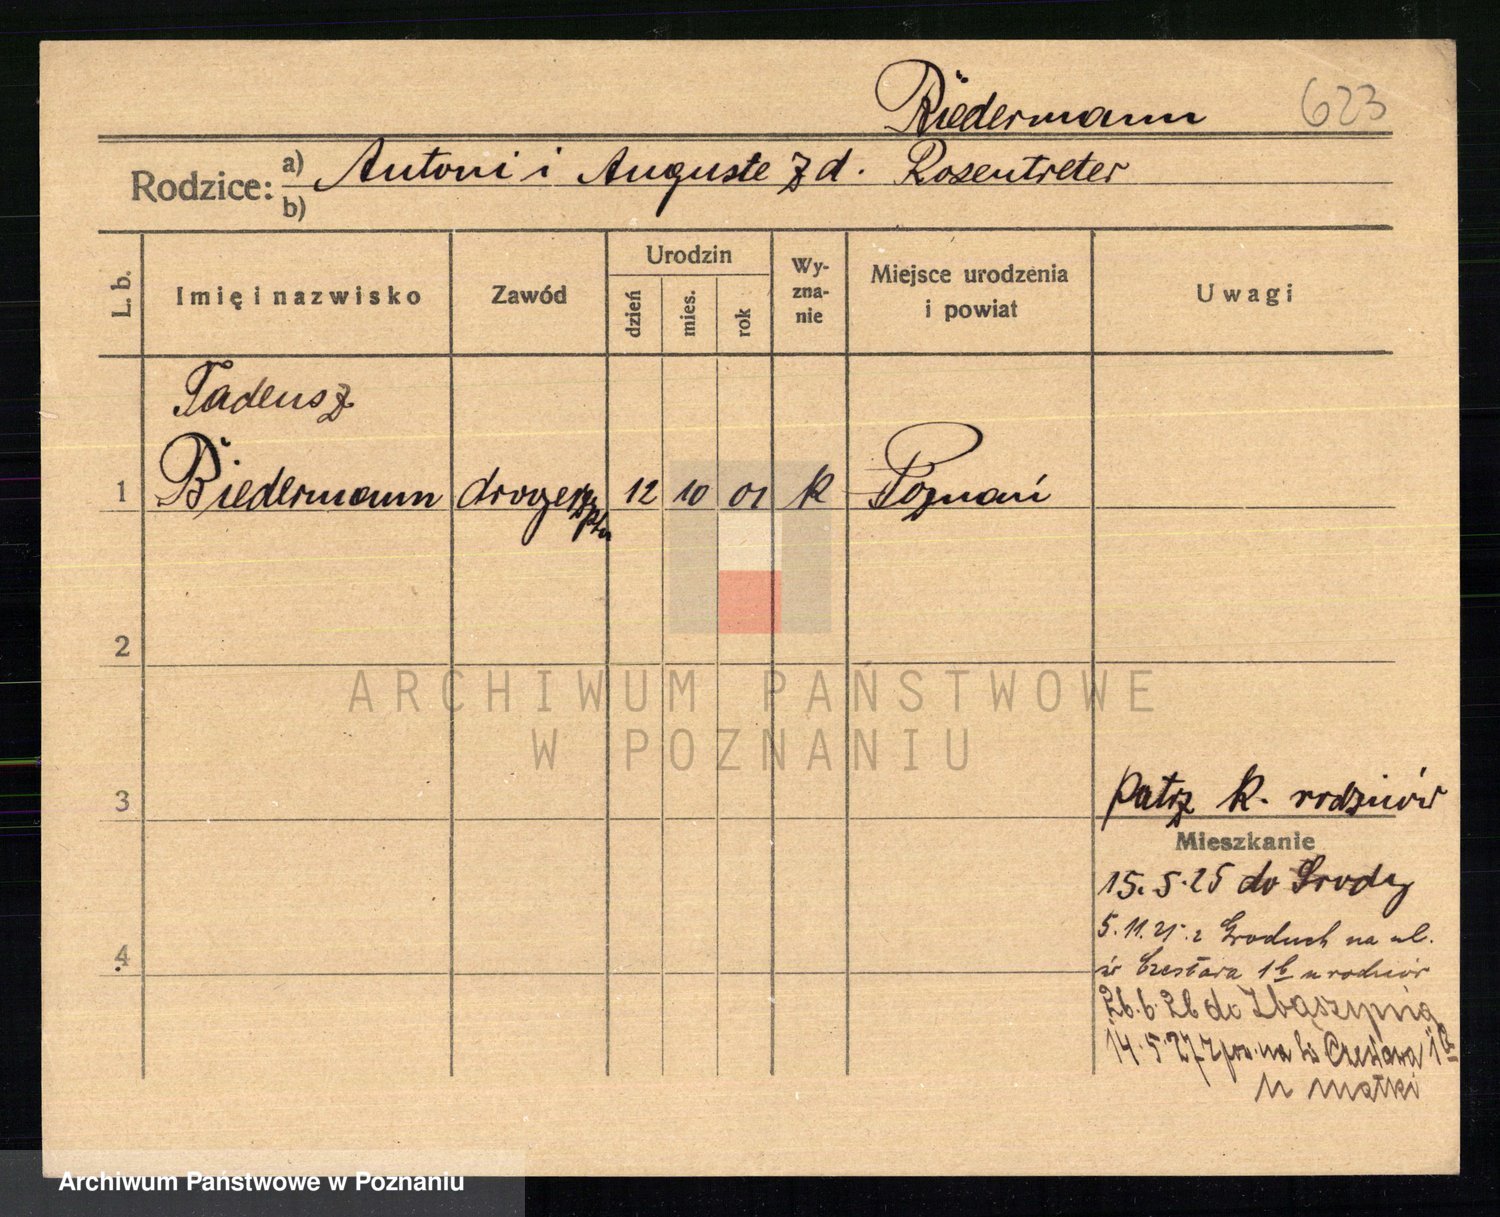 Biedermann 623
Rodzice: a) Antoni i Auguste z d. Rosentreter
b)
L. b.
Imię i nazwisko
Zawód
Urodzin
dzień
mies.
rok
Wy-
zna-
nie
Miejsce urodzenia
i powiat
Uwagi
Tadeusz
1 Biedermann 12 10 01 k Poznań
2
ARCHIWUM PAŃSTWOWE
W POZNANIU
3
Patrz k. rodziców
Mieszkanie
15.5.25 do Środy
4
5.11.25. z na ul.
św Czesława 1b u rodziców
26.6.26 do Zbąszynia
14.5.27 na św Czesława 1b
u matki
Archiwum Państwowe w Poznaniu